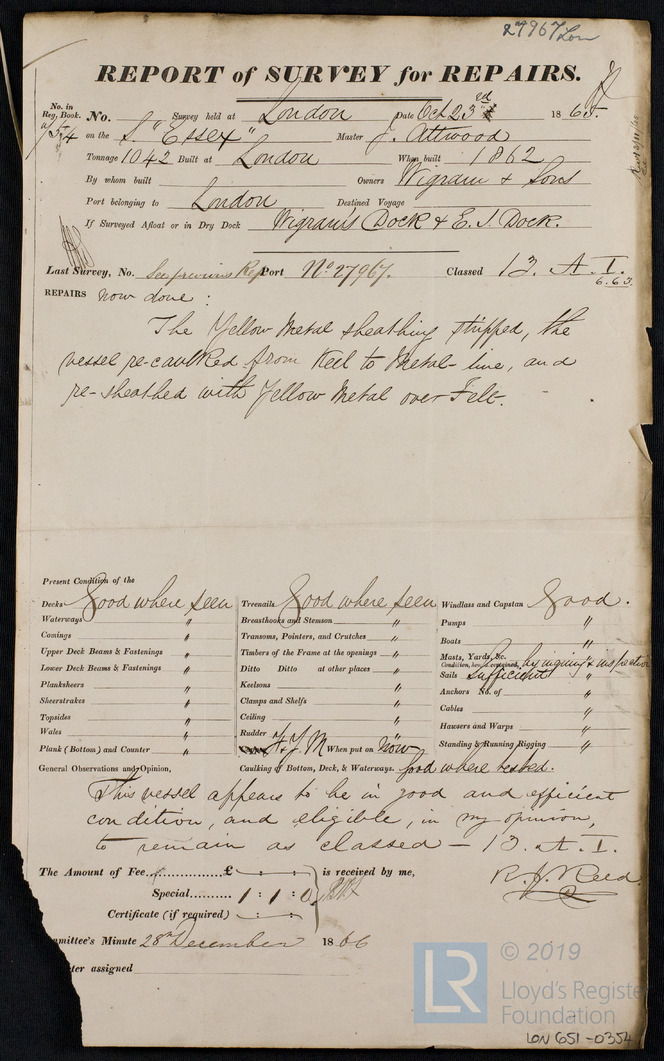 27967 Lon
REPORT of SURVEY for REPAIRS.
No. in Reg. Book. No. Survey held at London Date Oct 23rd 1865.
754 on the S. "Essex" Master J. Attwood
Tonnage 1042 Built at London When built 1862
By whom built Owners Wigram & Sons
Port belonging to London Destined Voyage
If Surveyed Afloat or in Dry Dock Wigram's Dock & E. I. Dock.
Last Survey, No. See previous Rep Port No 27967. Classed 13. A. I.
6.63.
REPAIRS now done:
The Yellow Metal sheathing stripped, the
vessel re-caulked from Keel to Metal-line, and
re-sheathed with Yellow Metal over Felt.
Present Condition of the
Decks Good where seen
Waterways "
Comings "
Upper Deck Beams & Fastenings "
Lower Deck Beams & Fastenings "
Planksheers "
Sheerstrakes "
Topsides "
Wales "
Plank (Bottom) and Counter "
Treenails Good where seen
Breasthooks and Stemson "
Transoms, Pointers, and Crutches "
Timbers of the Frame at the openings "
Ditto Ditto at other places "
Keelsons "
Clamps and Shelfs "
Ceiling "
Rudder "
F & Y M When put on now
Caulking of Bottom, Deck, & Waterways. Good where tested.
Windlass and Capstan Good.
Pumps "
Boats "
Masts, Yards, &c. "
Condition, how ascertained, by inquiry & inspection
Sails Sufficient "
Anchors No. of "
Cables "
Hawsers and Warps "
Standing & Running Rigging "
General Observations and Opinion,
This vessel appears to be in good and efficient
condition, and eligible, in my opinion,
to remain as classed – 13. A. I.
The Amount of Fee £ is received by me, R. J. Reed
Special 1 : 1 : 0
Certificate (if required)
mmittee's Minute 28th December 1866
ter assigned
© 2019
LR Lloyd's Register
Foundation
LON 651-0354